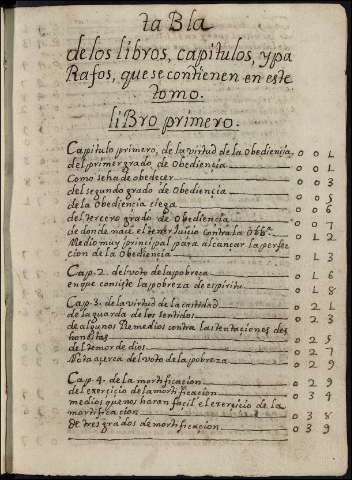 taBla
de los libros, capitulos, y pa
Rafos, que se contienen en este
tomo.
liBro primero.
Capitulo primero, de la virtud de la Obediençia. 0 0 1
del primer grado de Obediencia 0 0 1
Como seha de obedecer 0 0 3
del segundo grado de Obediencia 0 0 5
de la Obediencia ciega 0 0 6
del tercero grado de Obediencia 0 0 7
de donde nace el tener Juicio Contra la Obba. 0 1 2
Medio muy principal para alcançar la perfec
cion de la Obediencia 0 1 3
Cap. 2. del voto de la pobreça 0 1 6
en que consiste la pobreza de espiritu 0 1 8
Cap. 3. de la virtud de la castidad 0 2 1
de la guarda de los sentidos 0 2 3
de algunos Remedios contra las tentaciones des
honestas 0 2 5
del temor de dios 0 2 7
Nota acerca del voto de la pobreza 0 2 9
Cap. 4. de la mortificacion 0 2 9
del exerçiçio de la mortificacion 0 3 4
medios que nos haran façil el exerçiçio de la
mortificacion 0 3 8
de tres grados de mortificacion 0 3 9